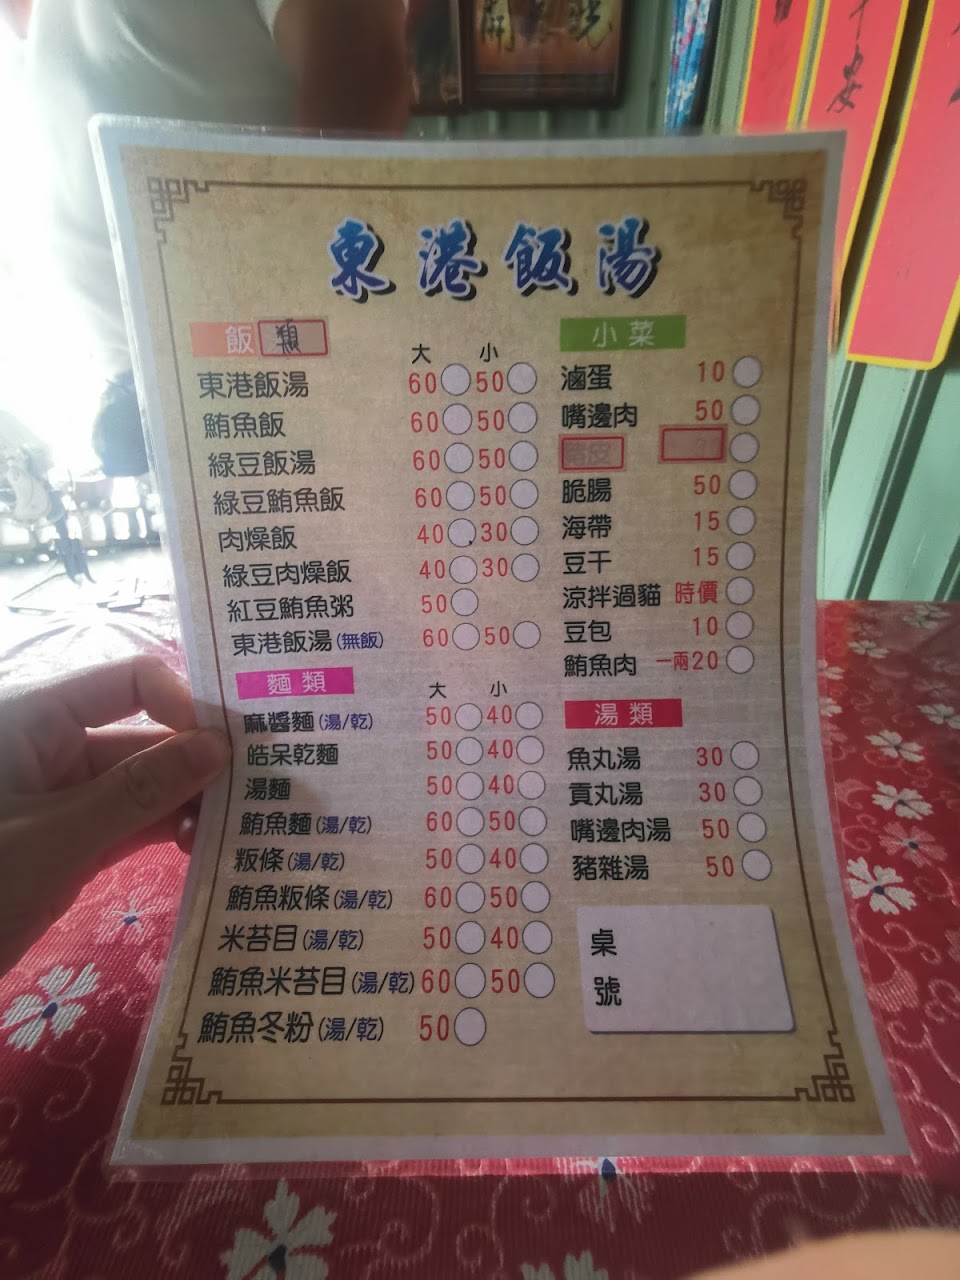 平安
東港飯湯
飯類
大 小
東港飯湯 60 50
鮪魚飯 60 50
綠豆飯湯 60 50
綠豆鮪魚飯 60 50
肉燥飯 40 30
綠豆肉燥飯 40 30
紅豆鮪魚粥 50
東港飯湯(無飯) 60 50
麵類
大 小
麻醬麵(湯/乾) 50 40
皓呆乾麵 50 40
湯麵 50 40
鮪魚麵(湯/乾) 60 50
粄條(湯/乾) 50 40
鮪魚粄條(湯/乾) 60 50
米苔目(湯/乾) 50 40
鮪魚米苔目(湯/乾) 60 50
鮪魚冬粉(湯/乾) 50
小菜
滷蛋 10
嘴邊肉 50
脆腸 50
海帶 15
豆干 15
涼拌過貓 時價
豆包 10
鮪魚肉 一兩20
湯類
魚丸湯 30
貢丸湯 30
嘴邊肉湯 50
豬雜湯 50
桌
號